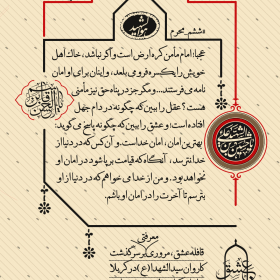 ششم محرم
عجبا! امام مأمن کره ارض است و اگر نباشد، خاک اهل
خویش را یکسره فرو می‌بلعد، و اینان برای او امان
نامه می‌فرستند... و مگر جز در پناه حق نیز مأمنی
هست؟ عقل را ببین که چگونه در دام جهل
افتاده است! و عشق را ببین که چگونه پاسخ می‌گوید:
بهترین امان، امان خداست. و آن کس که در دنیا از
خدا نترسد، آنگاه که قیامت برپا شود در امان او
نخواهد بود. و من از خدا می‌خواهم که در دنیا از او
بترسم تا آخرت را در امان او باشم.
معرفی
قافله عشق، مروری بر سرگذشت
کاروان سیدالشهدا(ع) در کربلا